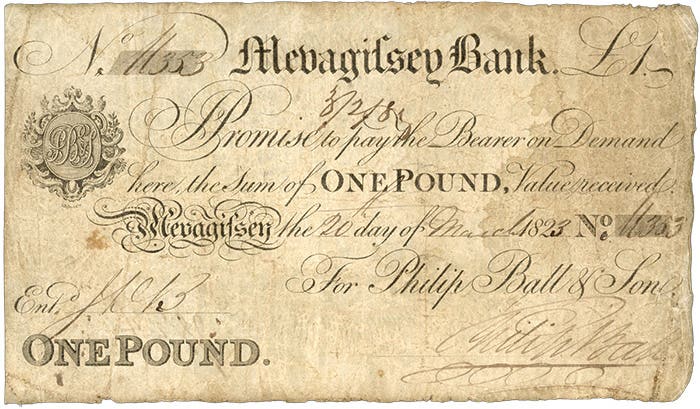 No. 11353 Mevagiſsey Bank. £1.
3/2/8
I Promise to pay the Bearer on Demand
here, the Sum of ONE POUND, Value received.
Mevagiſsey the 20 day of March 1823 No. 11353
For Philip Ball & Son.
Entd.
Philip Ball
ONE POUND.